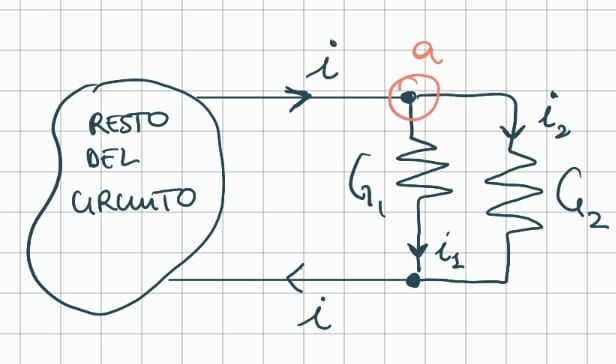 i
a
RESTO
DEL
CIRCUITO
i₂
G₁
G₂
i₁
i